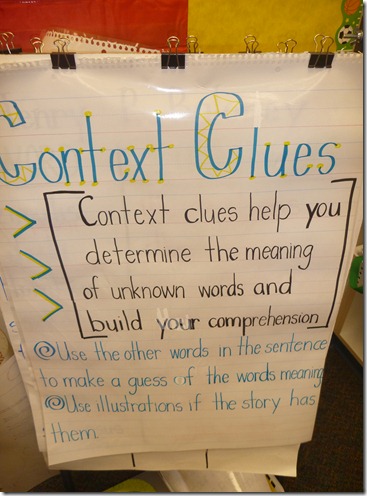 Context Clues
Context clues help you
determine the meaning
of unknown words and
build your comprehension
Use the other words in the sentence
to make a guess of the words meaning
Use illustrations if the story has
them.